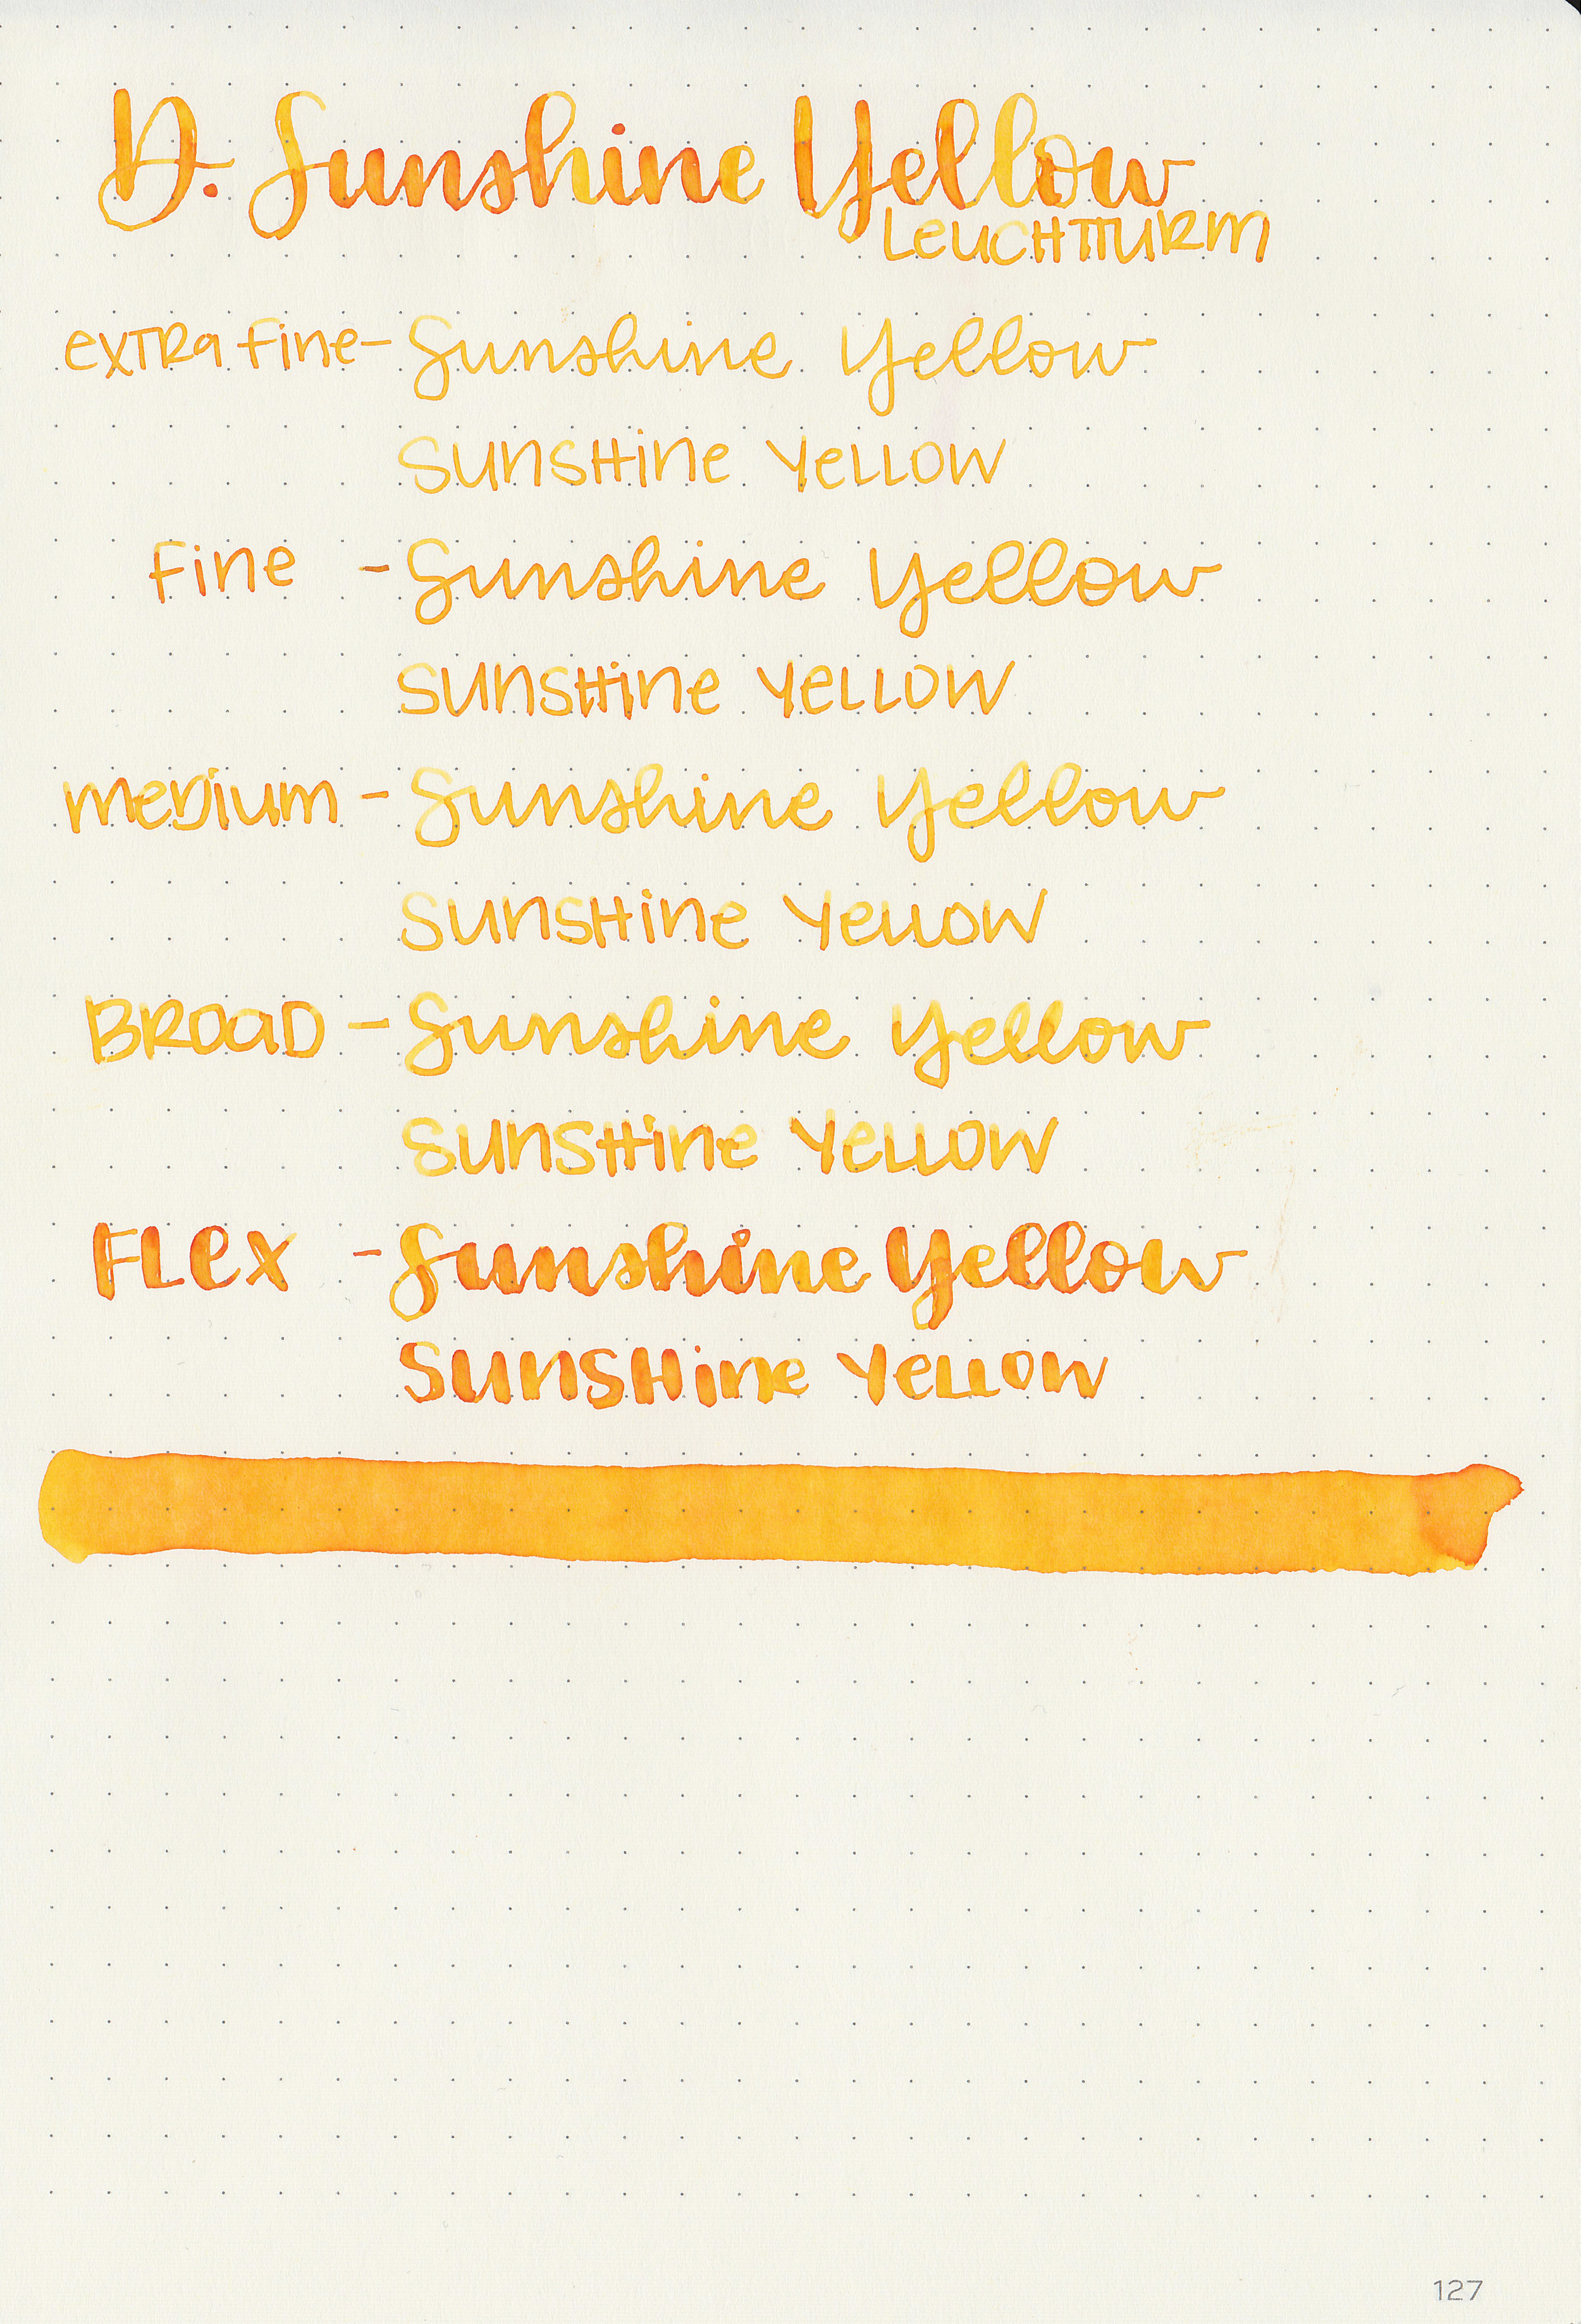 D. Sunshine Yellow
LEUCHTTURM
extra fine - Sunshine Yellow
Sunshine Yellow
Fine - Sunshine Yellow
Sunshine Yellow
medium - Sunshine Yellow
Sunshine Yellow
Broad - Sunshine Yellow
Sunshine Yellow
Flex - Sunshine Yellow
Sunshine Yellow
127